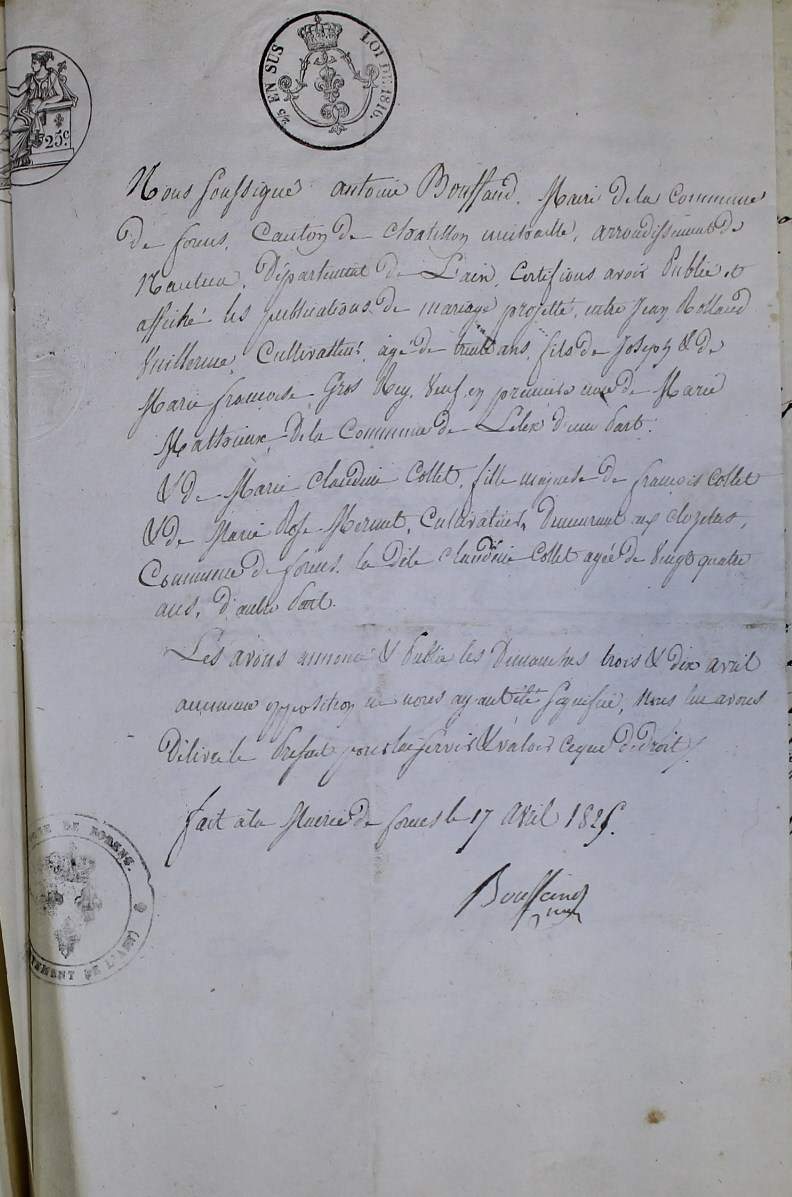 25c.
2/5 EN SUS LOI DE 1816.
Nous soussigné antoine Bouffand, Maire de la Commune
de forens, Canton de chatillon michaille, arrondissement de
Nantua, Département de L'ain, Certifions avoir Publié et
affiché les publications de mariage projetté, entre Jean Rolland
Guillerme, Cultivatteur, agé de trente ans, fils de Joseph & de
Marie françoise Gros Rey, Veuf en premiere noce de Marie
De la Commune de Lelex d'une part.
& de Marie Claudine Collet, fille majeure de françois Collet
& de Marie Rose Mermet, Cultivateurs, Demeurant aux
Commune de forens, la dite Claudine Collet agée de Vingt quatre
ans, d'autre part.
Les avons annoncé & Publié les Dimanches trois & dix avril
aucune opposition ne nous ayant été Signifiée, Nous lui avons
Délivré le Présent pour lui servir & valoir ce que De Droit
fait à la Mairie de forens le 17 Avril 1825.
Bouffand
MAIRIE DE FORENS.
DÉPARTEMENT DE L'AIN